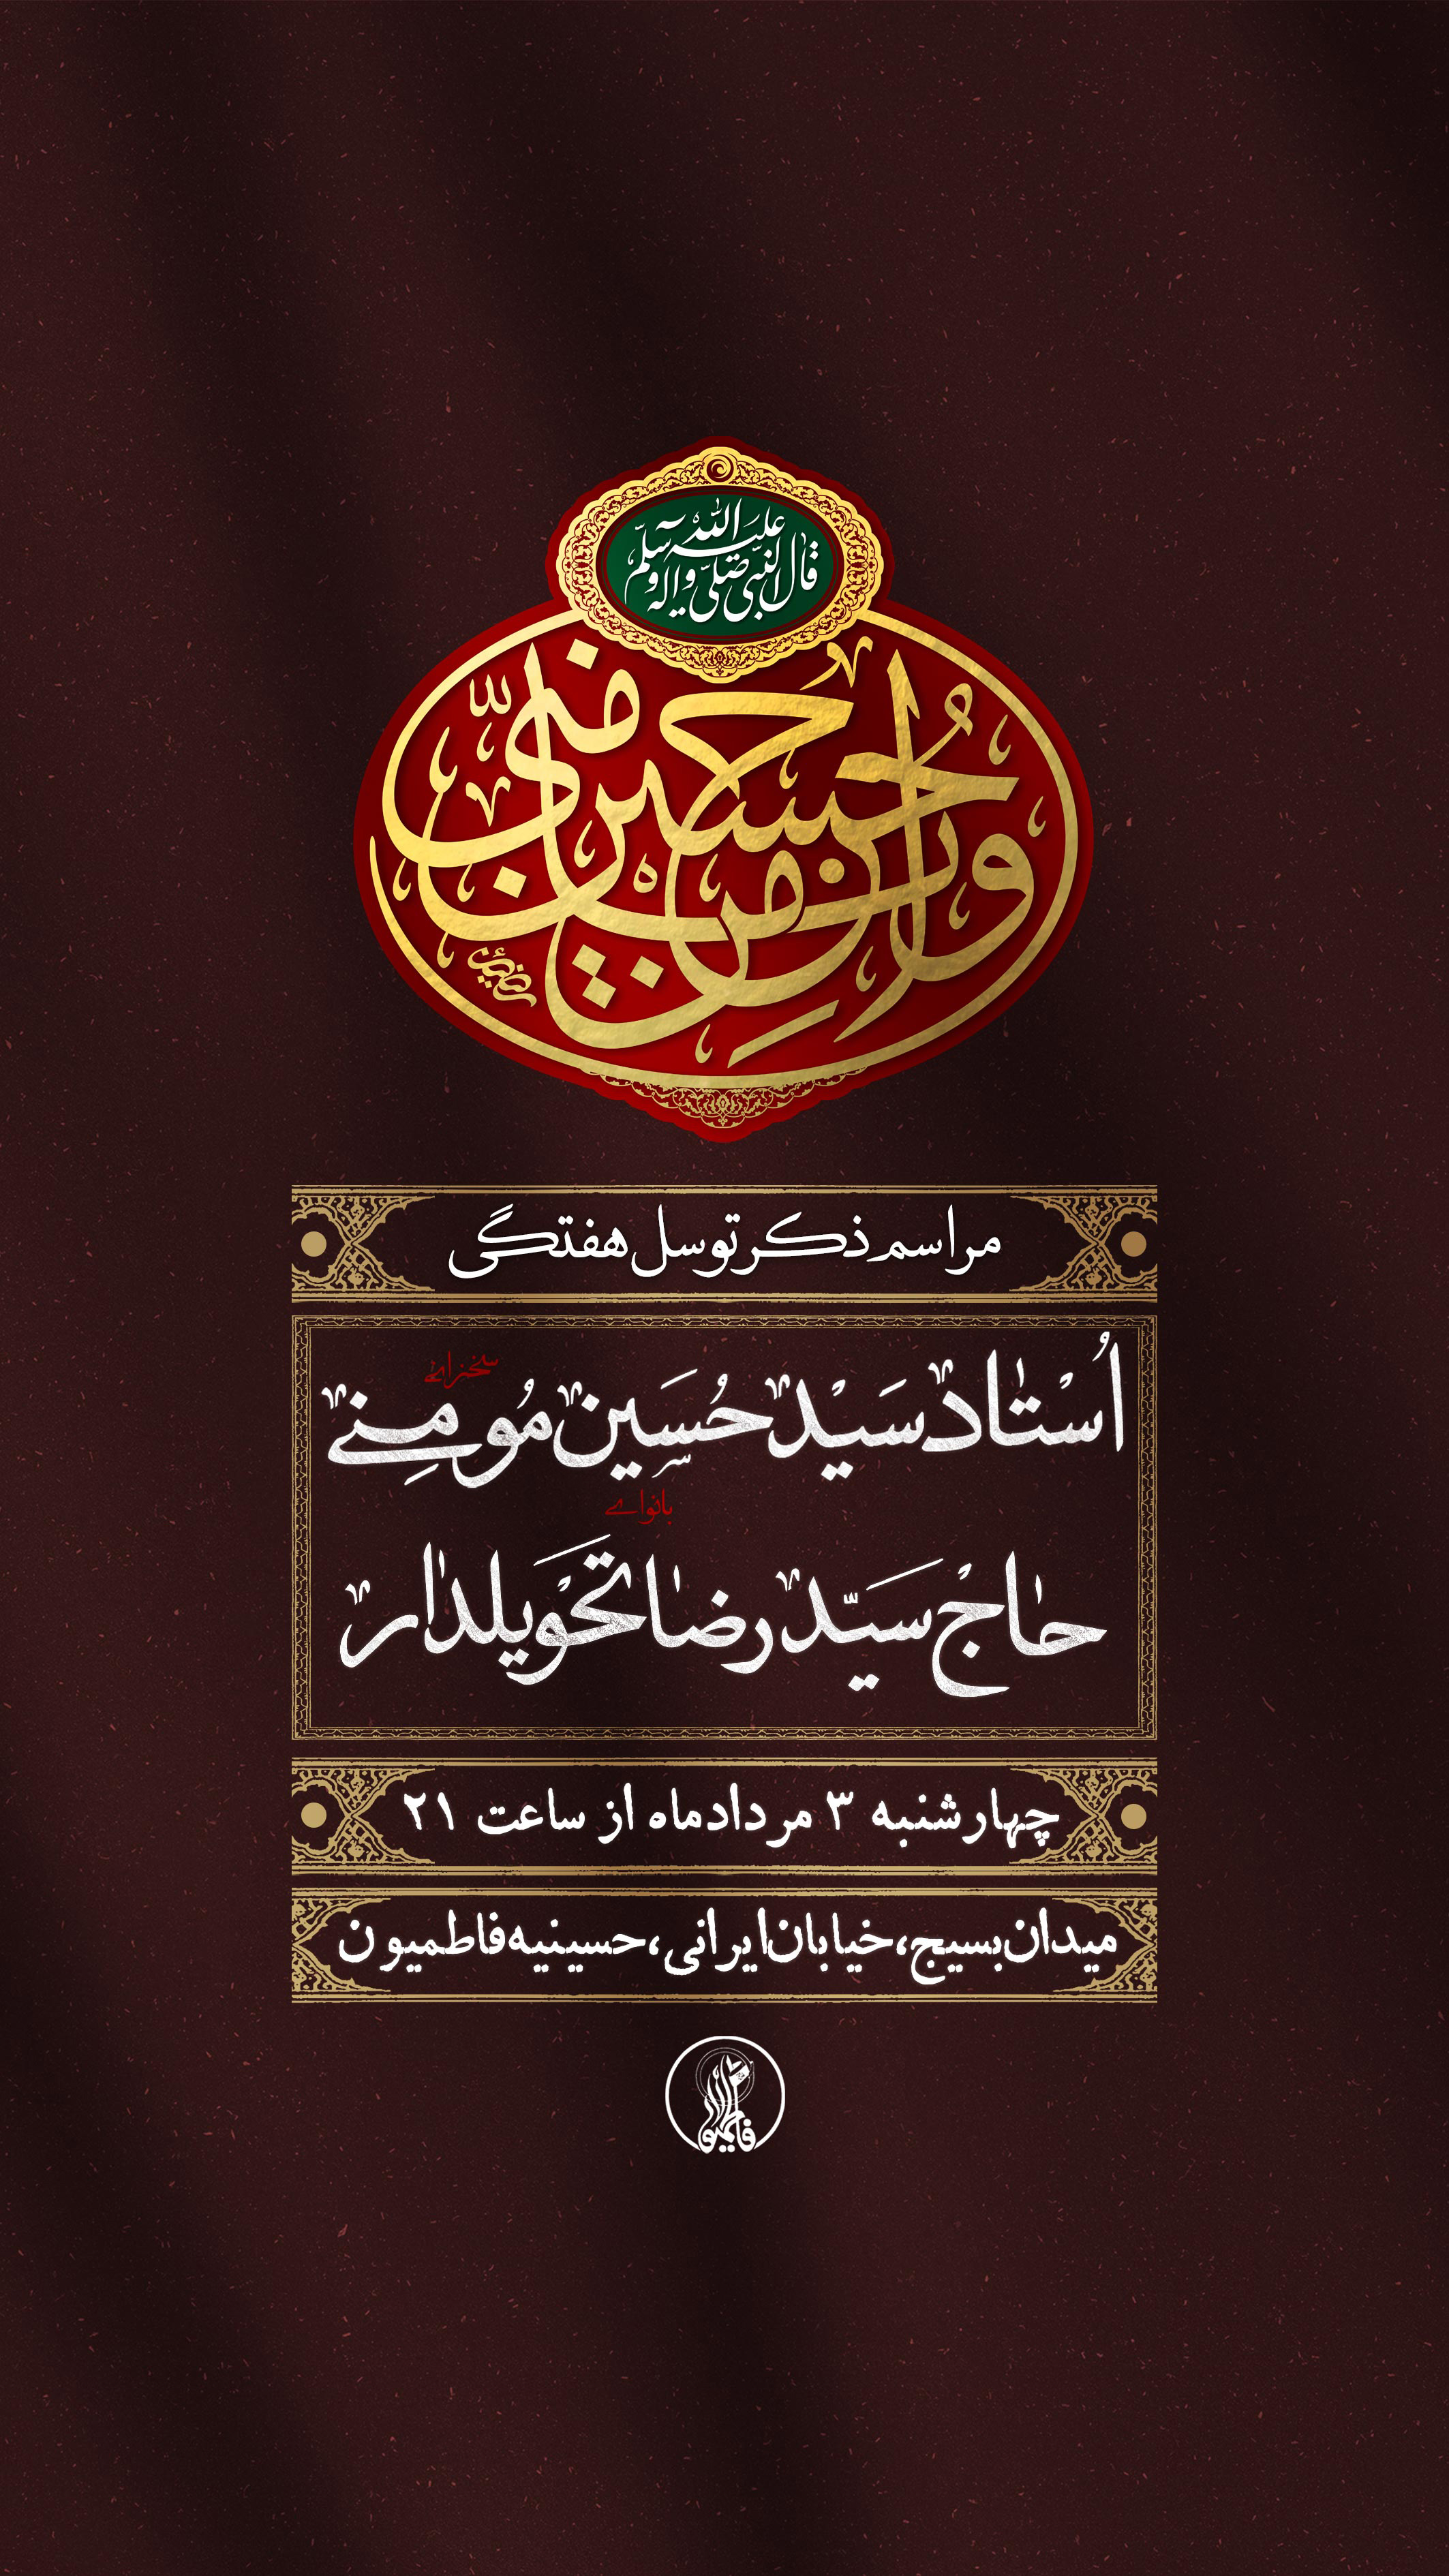 قال النبی صلی الله علیه وآله وسلم
حسین منی وانا من حسین
مراسم ذکر توسل هفتگی
سخنرانی
اُستاد سَیْد حُسَین مُومِنے
بانوای
حاج سَیّد رضا تَحْویلدار
چهارشنبه ۳ مردادماه از ساعت ۲۱
میدان بسیج، خیابان ایرانی، حسینیه فاطمیون
فاطمیون